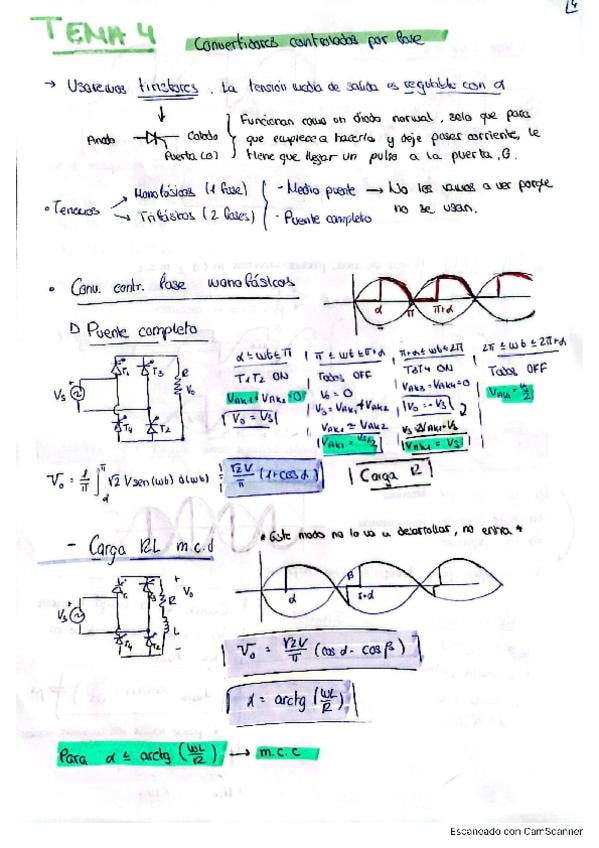 4
TEMA 4
Convertidores controlados por fase
→ Usaremos tiristores. La tensión media de salida es regulable con α
Ánodo Cátodo
Puerta (G)
Funcionan como un diodo normal, solo que para
que empiece a hacerlo y deje pasar corriente, le
tiene que llegar un pulso a la puerta, G.
• Tenemos
Monofásicos (1 fase)
Trifásicos (2 fases)
- Medio puente → No los vamos a ver porque
no se usan.
- Puente completo
• Conv. contr. fase monofásicos
α π π+α
1) Puente completo
Vs T1 T3 T4 T2 R Vo
α ≤ ωt ≤ π
T1T2 ON
VAK1 = VAK2 = 0
Vo = Vs
π ≤ ωt ≤ π+α
Todos OFF
Vo = 0
Vs = VAK1 + VAK2
VAK1 = VAK2
VAK1 = Vs/2
π+α ≤ ωt ≤ 2π
T3T4 ON
VAK3 = VAK4 = 0
Vo = -Vs
VAK1 = Vs
2π ≤ ωt ≤ 2π+α
Todos OFF
Vo = 1/π ∫απ √2 V sen(ωt) d(ωt) = √2V/π (1+cos α)
Carga R
- Carga RL m.c.d
* Este modo no lo va a desarrollar, no entra *
Vs T1 T3 T4 T2 R L + Vo -
α β π+α
Vo = √2V/π (cos α - cos β)
α = arctg (ωL/R)
Para α ≤ arctg (ωL/R) → m.c.c
Escaneado con CamScanner